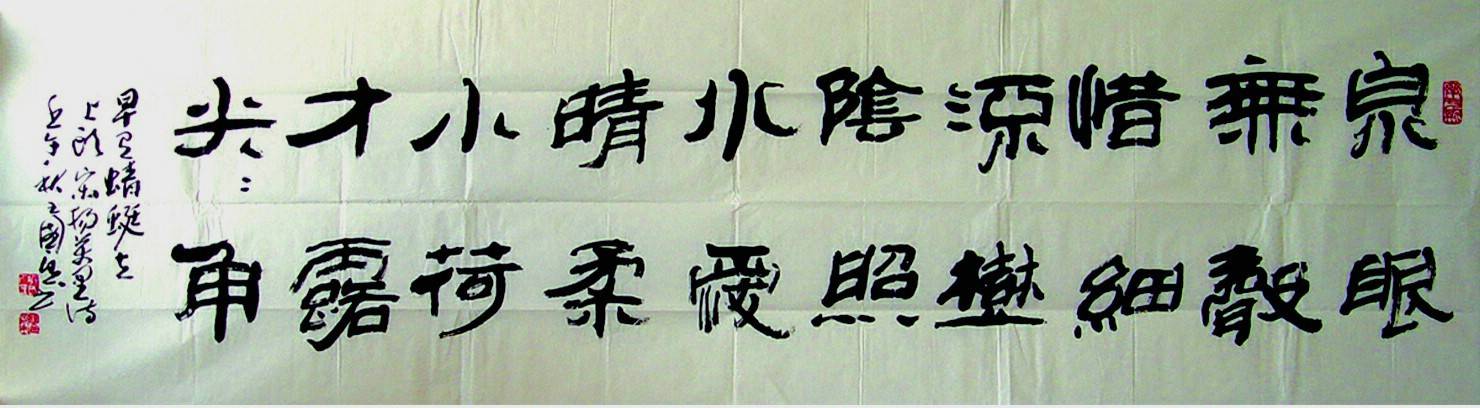 泉眼
無聲
惜細
流樹
陰照
水愛
晴柔
小荷
才露
尖〻角
早有蜻蜓立
上頭宋楊萬里詩
午秋王國